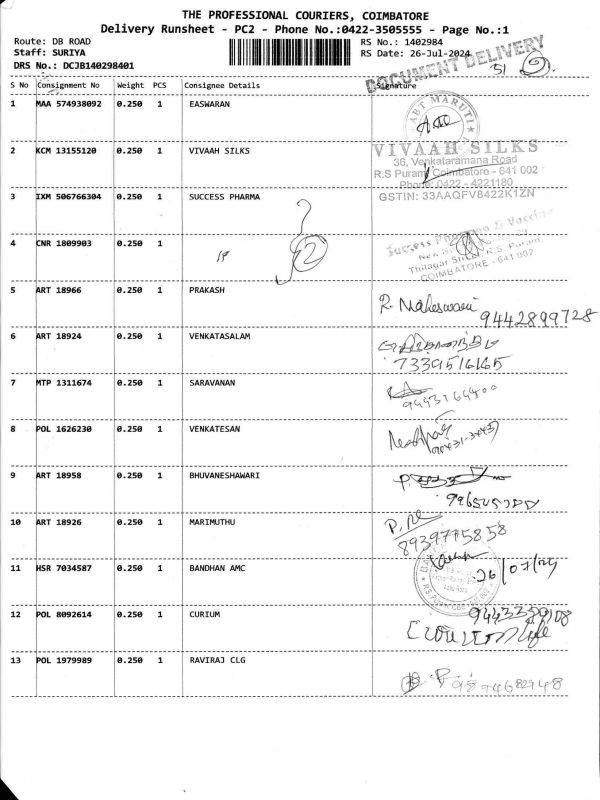 THE PROFESSIONAL COURIERS, COIMBATORE
Delivery Runsheet - PC2 - Phone No.:0422-3505555 - Page No.:1
Route: DB ROAD RS No.: 1402984
Staff: SURIYA RS Date: 26-Jul-2024
DRS No.: DCJB140298401
DOCUMENT DELIVERY
51
S No Consignment No Weight PCS Consignee Details Signature
1 MAA 574938092 0.250 1 EASWARAN
ABT MARUTI
2 KCM 13155120 0.250 1 VIVAAH SILKS
VIVAAH SILKS
36, Venkataramana Road
R.S Puram, Coimbatore - 641 002
Phone: 0422 - 4221180
GSTIN: 33AAQFV8422K1ZN
3 IXM 506766304 0.250 1 SUCCESS PHARMA
Success Pharma & Vaccine
Thilagar Street, R.S. Puram,
COIMBATORE - 641 002
4 CNR 1809903 0.250 1
5 ART 18966 0.250 1 PRAKASH
R. Maheswari
9442899728
6 ART 18924 0.250 1 VENKATASALAM
7339516165
7 MTP 1311674 0.250 1 SARAVANAN
9443164400
8 POL 1626230 0.250 1 VENKATESAN
9 ART 18958 0.250 1 BHUVANESHAWARI
10 ART 18926 0.250 1 MARIMUTHU
8939775858
11 HSR 7034587 0.250 1 BANDHAN AMC
26/07/24
12 POL 8092614 0.250 1 CURIUM
9443350108
Curium life
13 POL 1979989 0.250 1 RAVIRAJ CLG